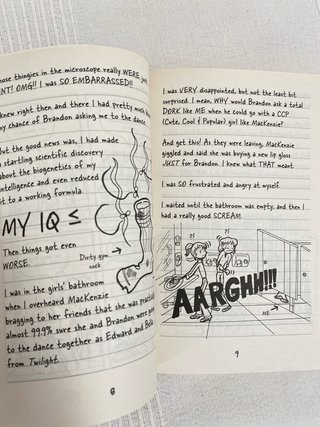 those thingies in the microscope really WERE just
LINT! OMG!! I was SO EMBARRASSED!!
knew right then and there I had pretty much blown
my chance of Brandon asking me to the dance.
But the good news was, I had made
a startling scientific discovery
about the biogenetics of my
intelligence and even reduced
it to a working formula.
MY IQ ≤
Then things got even
WORSE.
Dirty gym
sock
I was in the girls' bathroom
when I overheard MacKenzie
bragging to her friends that she was practically
almost 99.9% sure she and Brandon were going
to the dance together as Edward and Bella
from Twilight.
8
I was VERY disappointed, but not the least bit
surprised. I mean, WHY would Brandon ask a total
DORK like ME when he could go with a CCP
(Cute, Cool & Popular) girl like MacKenzie?
And get this! As they were leaving, MacKenzie
giggled and said she was buying a new lip gloss
JUST for Brandon. I knew what THAT meant.
I was SO frustrated and angry at myself.
I waited until the bathroom was empty, and then I
had a really good SCREAM.
?!
?!
AARGHH!!!
ME
9